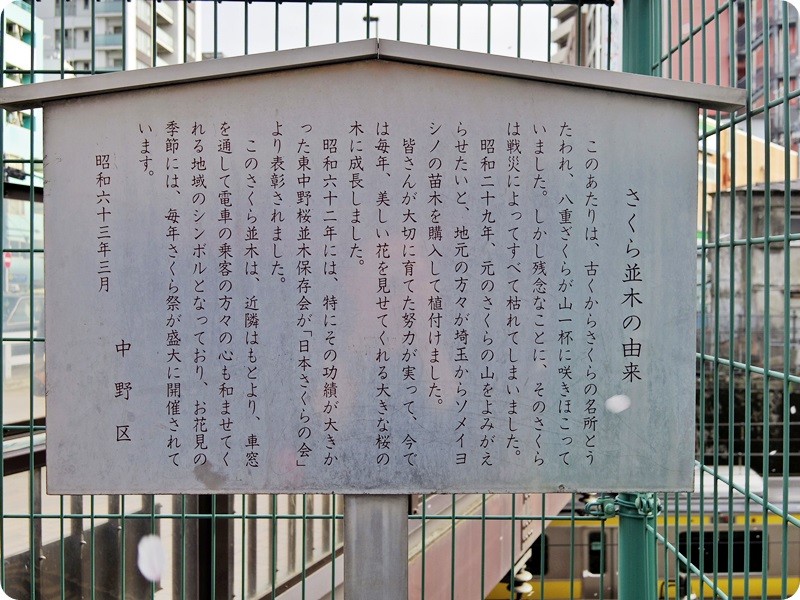 さくら並木の由来
このあたりは、古くからさくらの名所とう
たわれ、八重ざくらが山一杯に咲きほこって
いました。しかし残念なことに、そのさくら
は戦災によってすべて枯れてしまいました。
昭和二十九年、元のさくらの山をよみがえ
らせたいと、地元の方々が埼玉からソメイヨ
シノの苗木を購入して植付けました。
皆さんが大切に育てた努力が実って、今で
は毎年、美しい花を見せてくれる大きな桜の
木に成長しました。
昭和六十二年には、特にその功績が大きか
った東中野桜並木保存会が「日本さくらの会」
より表彰されました。
このさくら並木は、近隣はもとより、車窓
を通して電車の乗客の方々の心も和ませてく
れる地域のシンボルとなっており、お花見の
季節には、毎年さくら祭が盛大に開催されて
います。
昭和六十三年三月
中野区